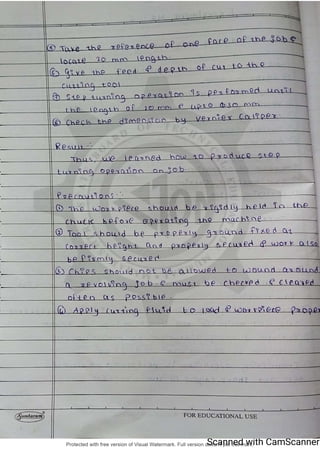 ④ Take the reference of one face of the job &
locate 20 mm length
⑤ give the feed & depth of cut to the
cutting tool
⑦ Step turning operation is performed until
the length of 10 mm & upto Φ30 mm
⑧ Check the dimension by vernier caliper
Result :-
Thus, we learned how to produce step
turning operation on job
Precautions :-
① The workpiece should be rigidly held in the
chuck before operating the machine.
② Tool should be properly ground fixed at
correct height and properly secured & work also
be firmly secured
③ Chips should not be allowed to wound around
a revolving job & must be checked & cleared
often as possible.
④ Apply cutting fluid to load & workpiece proper
Sundaram
FOR EDUCATIONAL USE
Protected with free version of Visual Watermark. Full version
Scanned with CamScanner